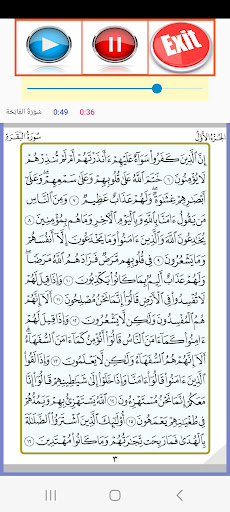 Exit
سورة الفاتحة 0:49 0:36
سُورَةُ البَقَرَةِ الجُزْءُ الأَوَّلُ
إِنَّ ٱلَّذِينَ كَفَرُوا۟ سَوَآءٌ عَلَيْهِمْ ءَأَنذَرْتَهُمْ أَمْ لَمْ تُنذِرْهُمْ
لَا يُؤْمِنُونَ ٦ خَتَمَ ٱللَّهُ عَلَىٰ قُلُوبِهِمْ وَعَلَىٰ سَمْعِهِمْ ۖ وَعَلَىٰٓ
أَبْصَٰرِهِمْ غِشَٰوَةٌ ۖ وَلَهُمْ عَذَابٌ عَظِيمٌ ٧ وَمِنَ ٱلنَّاسِ
مَن يَقُولُ ءَامَنَّا بِٱللَّهِ وَبِٱلْيَوْمِ ٱلْءَاخِرِ وَمَا هُم بِمُؤْمِنِينَ ٨
يُخَٰدِعُونَ ٱللَّهَ وَٱلَّذِينَ ءَامَنُوا۟ وَمَا يَخْدَعُونَ إِلَّآ أَنفُسَهُمْ
وَمَا يَشْعُرُونَ ٩ فِى قُلُوبِهِم مَّرَضٌ فَزَادَهُمُ ٱللَّهُ مَرَضًا ۖ
وَلَهُمْ عَذَابٌ أَلِيمٌۢ بِمَا كَانُوا۟ يَكْذِبُونَ ١٠ وَإِذَا قِيلَ لَهُمْ
لَا تُفْسِدُوا۟ فِى ٱلْأَرْضِ قَالُوٓا۟ إِنَّمَا نَحْنُ مُصْلِحُونَ ١١ أَلَآ إِنَّهُمْ
هُمُ ٱلْمُفْسِدُونَ وَلَٰكِن لَّا يَشْعُرُونَ ١٢ وَإِذَا قِيلَ لَهُمْ
ءَامِنُوا۟ كَمَآ ءَامَنَ ٱلنَّاسُ قَالُوٓا۟ أَنُؤْمِنُ كَمَآ ءَامَنَ ٱلسُّفَهَآءُ ۗ
أَلَآ إِنَّهُمْ هُمُ ٱلسُّفَهَآءُ وَلَٰكِن لَّا يَعْلَمُونَ ١٣ وَإِذَا لَقُوا۟
ٱلَّذِينَ ءَامَنُوا۟ قَالُوٓا۟ ءَامَنَّا وَإِذَا خَلَوْا۟ إِلَىٰ شَيَٰطِينِهِمْ قَالُوٓا۟ إِنَّا
مَعَكُمْ إِنَّمَا نَحْنُ مُسْتَهْزِءُونَ ١٤ ٱللَّهُ يَسْتَهْزِئُ بِهِمْ وَيَمُدُّهُمْ
فِى طُغْيَٰنِهِمْ يَعْمَهُونَ ١٥ أُو۟لَٰٓئِكَ ٱلَّذِينَ ٱشْتَرَوُا۟ ٱلضَّلَٰلَةَ
بِٱلْهُدَىٰ فَمَا رَبِحَت تِّجَٰرَتُهُمْ وَمَا كَانُوا۟ مُهْتَدِينَ ١٦
٣